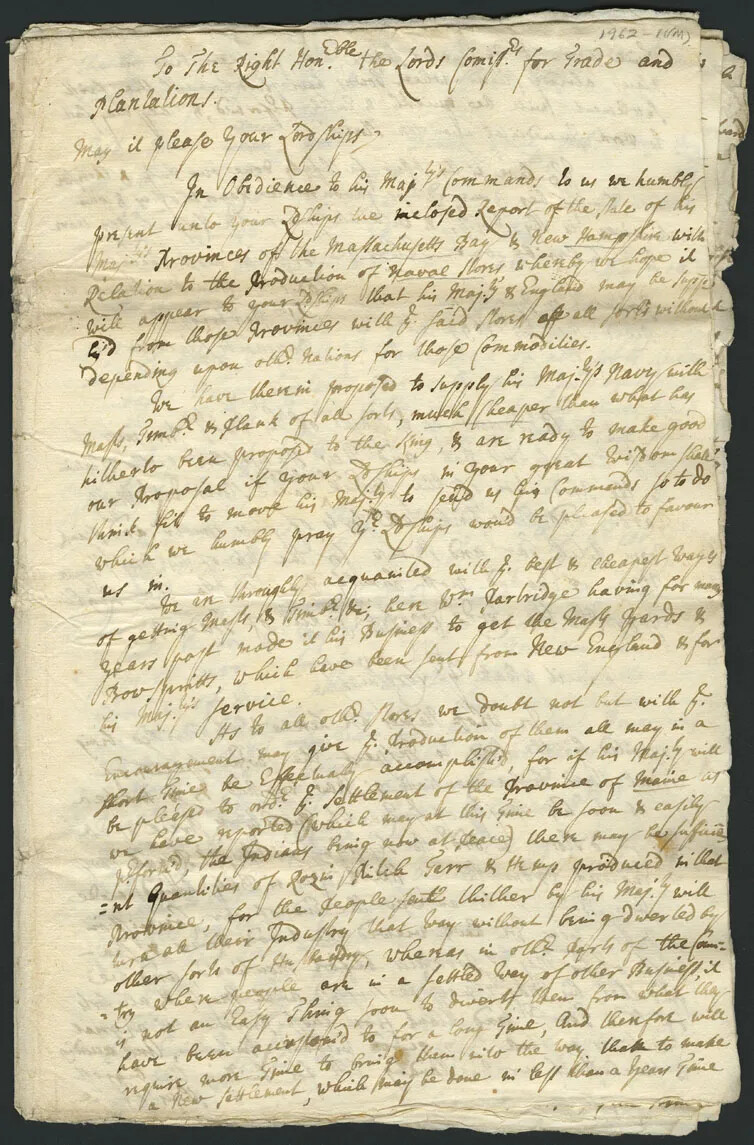 1962-1(M)
To The Right Hon.ble the Lords Comiss.rs for Trade and
Plantations.
May it please Your Lordships,
In Obedience to his Maj.tys Commands to us we humbly
present unto your Ldships the inclosed Report of the state of his
Maj.tys Provinces of the Massachusetts Bay & New Hampshire with
Relation to the Production of Naval Stores whereby we hope it
will appear to your Ldships that his Maj.ty & England may be supp=
ly'd from those Provinces with y.e said stores of all sorts without
depending upon oth.r Nations for those Commodities.
We have therein proposed to supply his Maj.tys Navy with
Masts, Timb.r & Plank of all sorts, much Cheaper than what has
hitherto been proposed to the King, & are ready to make good
our Proposal if your Ldships in your great Wisdom shall
think fit to move his Maj.ty to send us his Commands so to do
which we humbly pray y.r Ldships would be pleased to favour
us in.
We are throughly acquainted with y.e best & cheapest ways
of getting Masts, & Timb.r &c; here W.m Partridge having for many
Years past made it his Business to get the Masts Yards &
Bowspritts, which have been sent from New England & for
his Maj.tys Service.
As to all oth.r stores we doubt not but with y.e
Encouragement may give y.e Production of them all may in a
short Time be Effectually accomplish'd, for if his Maj.ty will
be pleased to ord.r y.e Settlement of the Province of Maine as
we have reported (which may at this Time be soon & easily
p'formd, the Indians being now at Peace) there may be suffici=
=nt Quantities of Rozin Pitch Tarr & Hemp produced in that
Province, for the People sent thither by his Maj.ty will
use all their Industry that way without being diverted by
other sorts of Husbandry, whereas in oth.r Parts of the Coun=
=try where people are in a settled way of other Business, it
is not an Easy Thing soon to divert them from what they
have been accustom'd to for a long Time, And therefore will
require more Time to bring them into the way than to make
a New Settlement, which may be done in less than a Years Time